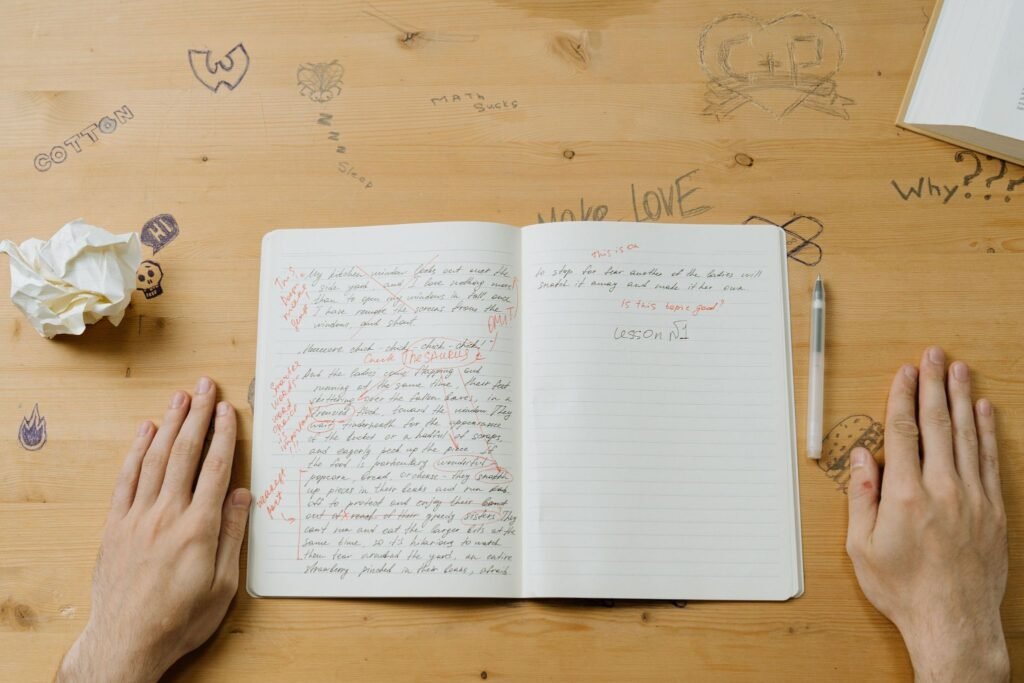 W
COTTON
MATH
Sucks
N
N
N
Sleep
C+P
Why???
HI
Make LOVE
My kitchen window looks out over the
side yard, and I love nothing more
than to open my windows in fall, once
I have remove the screens from the
windows, and shout.
OMIT!
chick-chick-chick-chick!
Check THESAURUS
And the ladies come flapping and
running at the same time, their feet
skittering over the fallen leaves, in a
frenzied flock, toward the window. They
wait underneath for the appearance
of the bucket or a handful of scraps,
and eagerly peck up the piece. If
the food is particulary wonderful
popcorn, bread, or cheese - they snatch
up pieces in their beaks and run
off to protect and enjoy their
out of reach of their greedy sisters. They
can't run and eat the larger bits at the
same time, so it's hilarious to watch
them tear around the yard, an entire
strawberry pinched in their beaks, afraid
This
weakest
part
This is a
to stop for fear another of the ladies will
snatch it away and make it her own.
Is this topic good?
Lesson №1